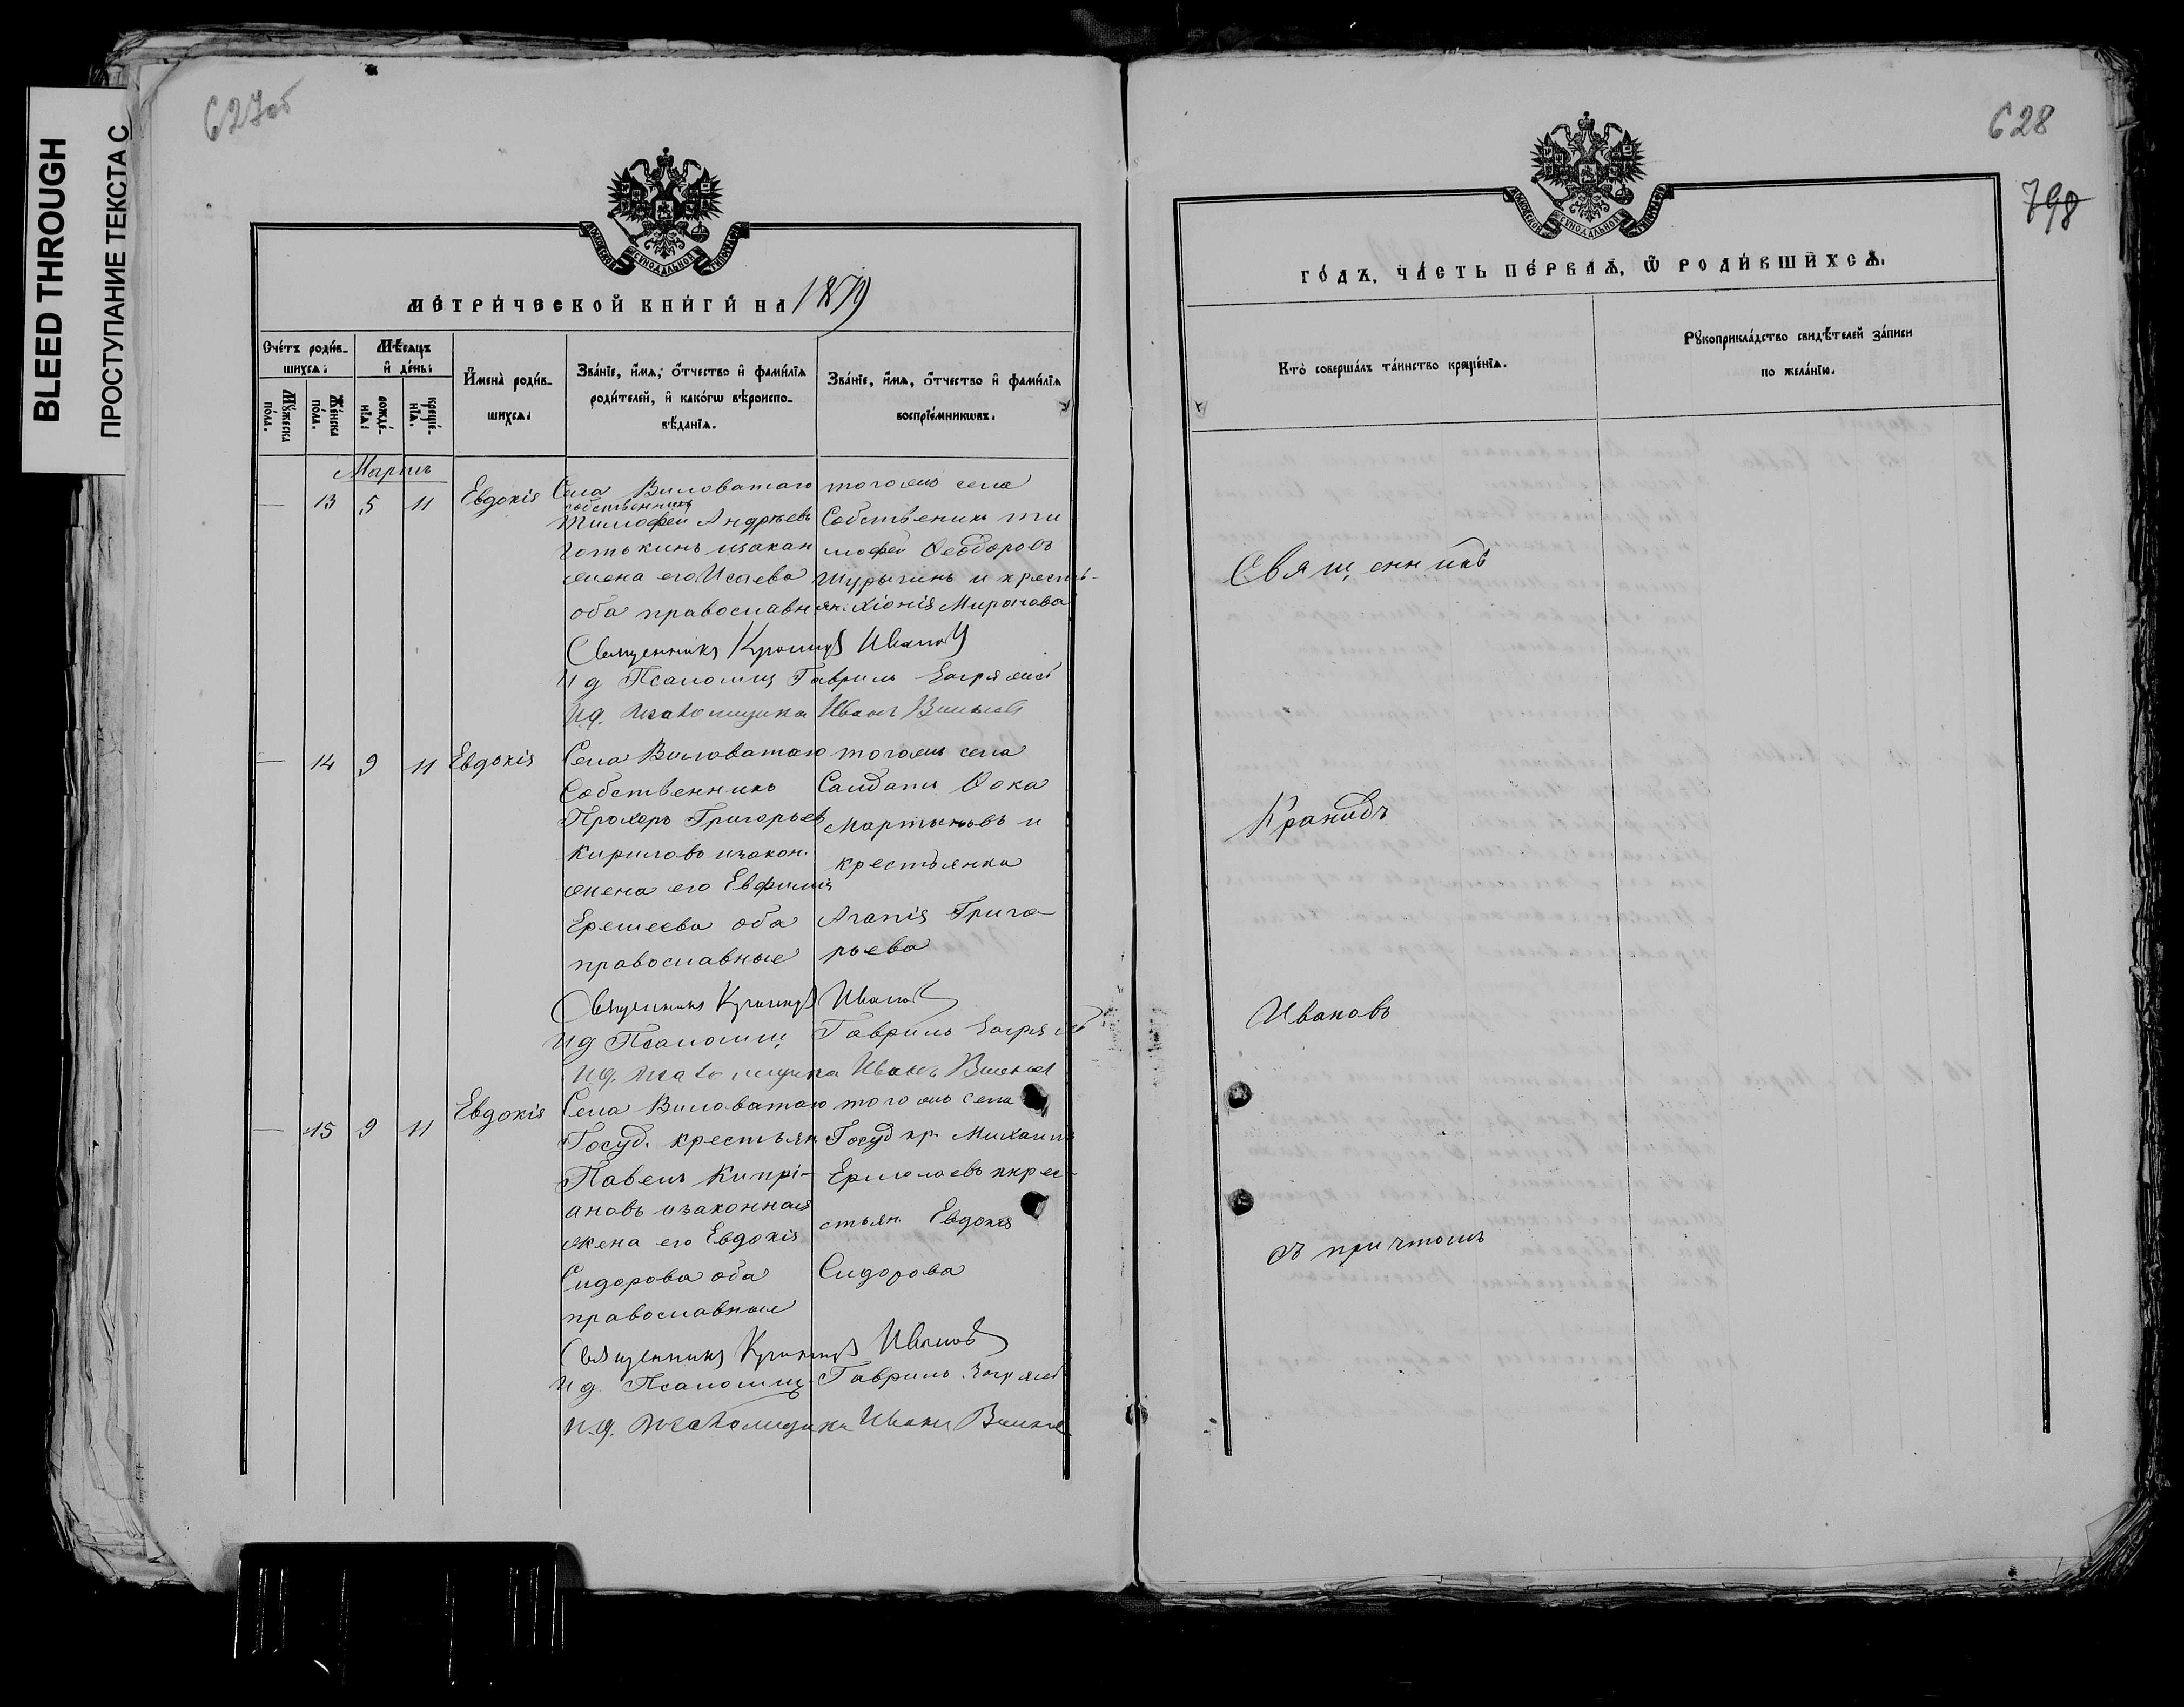 BLEED THROUGH
ПРОСТУПАНИЕ ТЕКСТА С
627об
МОСКОВСКОЙ СѴНОДАЛЬНОЙ ТИПОГРАФІИ
МЕТРИЧЕСКОЙ КНИГИ НА 1879
Счетъ родив-
шихся.
Мѣсяцъ
и день.
Имена родив-
шихся.
Званіе, имя, отчество и фамилія
родителей, и какогѡ вѣроиспо-
вѣданія.
Званіе, имя, отчество и фамилія
воспріемникѡвъ.
Мужеска
пола.
Женска
пола.
рожде-
нія.
креще-
нія.
Мартъ
— 13 5 11 Евдокія
Села Виловатаго
собственникъ
Тимофей Андреевъ
изакон
жена его Исаева
оба православн
тогожъ села
Собственикъ Ти
мофей Феодоровъ
Шурыгинъ и кресть-
ян. Хіонія Миронова
Священникъ Кронидъ Ивановъ
И д Псаломщ Гавриилъ
И.д. псаломщика Иванъ
— 14 9 11 Евдокія
Села Виловатаго
Собственникъ
Прохоръ Григорьев
Кириловъ изакон.
жена его Евфимія
Еремеева оба
православные
тогожъ села
Салдатъ Фока
Мартыновъ и
крестьянка
Агапія Григо-
рьева
Священникъ Кронидъ Ивановъ
И д Псаломщ Гавриилъ
И.д. псаломщика Иванъ
— 15 9 11 Евдокія
Села Виловатаго
Госуд. крестьян
Павелъ Кипрі-
ановъ изаконная
жена его Евдокія
Сидорова оба
православные
тогожъ села
Госуд кр. Михаилъ
Ермолаевъ икрес-
стьян. Евдокія
Сидорова
Священникъ Кронидъ Ивановъ
И д Псаломщ. Гавриилъ
И.д. псаломщика Иванъ
628
798
МОСКОВСКОЙ СѴНОДАЛЬНОЙ ТИПОГРАФІИ
ГОДЪ, ЧАСТЬ ПЕРВАЯ, Ѿ РОДИВШИХСЯ.
Кто совершалъ таинство крещенія.
Рукоприкладство свидѣтелей записи
по желанію.
Священникъ
Кранидъ
Ивановъ
съ причтомъ